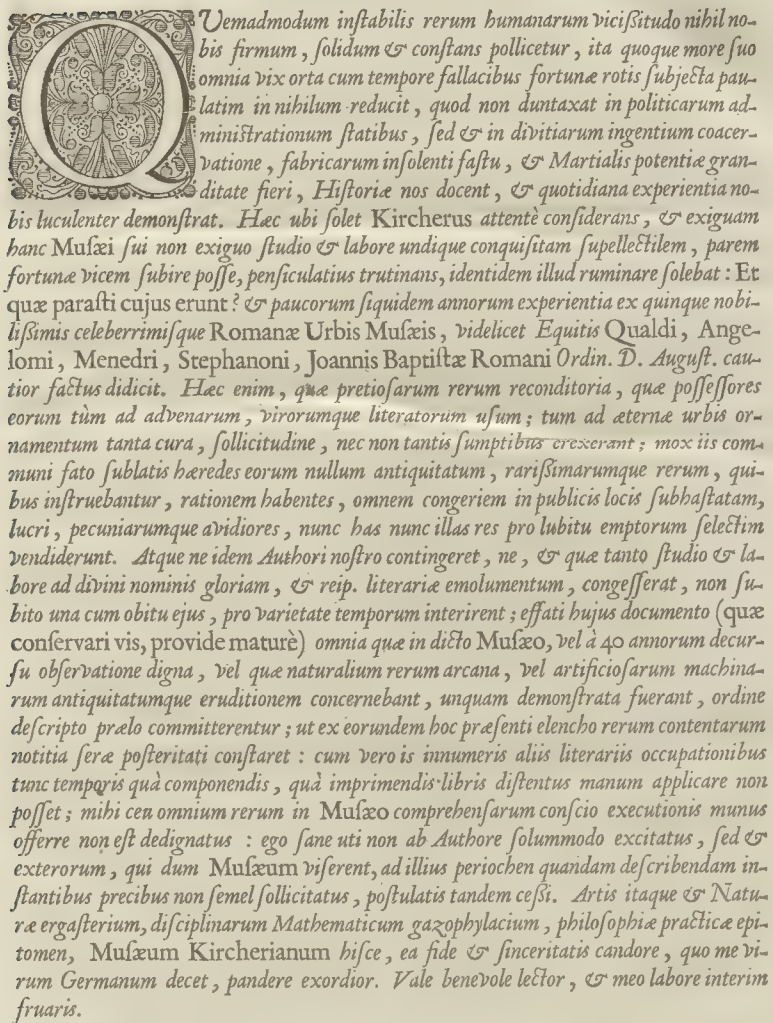 QUemadmodum inſtabilis rerum humanarum viciſsitudo nihil no-
bis firmum, ſolidum & conſtans pollicetur, ita quoque more ſuo
omnia vix orta cum tempore fallacibus fortunæ rotis ſubjecta pau-
latim in nihilum reducit, quod non duntaxat in politicarum ad-
miniſtrationum ſtatibus, ſed & in divitiarum ingentium coacer-
vatione, fabricarum inſolenti faſtu, & Martialis potentiæ gran-
ditate fieri, Hiſtoriæ nos docent, & quotidiana experientia no-
bis luculenter demonſtrat. Hæc ubi ſolet Kircherus attentè conſiderans, & exiguam
hanc Muſæi ſui non exiguo ſtudio & labore undique conquiſitam ſupellectilem, parem
fortunæ vicem ſubire poſſe, penſiculatius trutinans, identidem illud ruminare ſolebat: Et
quæ paraſti cujus erunt? & paucorum ſiquidem annorum experientia ex quinque nobi-
liſsimis celeberrimiſque Romanæ Urbis Muſæis, videlicet Equitis Qualdi, Ange-
lomi, Menedri, Stephanoni, Joannis Baptiſtæ Romani Ordin. D. Auguſt. cau-
tior factus didicit. Hæc enim, quæ pretioſarum rerum reconditoria, quæ poſſeſſores
eorum tùm ad advenarum, virorumque literatorum uſum; tum ad æternæ urbis or-
namentum tanta cura, ſollicitudine, nec non tantis ſumptibus erexerant; mox iis com-
muni fato ſublatis hæredes eorum nullum antiquitatum, rariſsimarumque rerum, qui-
bus inſtruebantur, rationem habentes, omnem congeriem in publicis locis ſubhaſtatam,
lucri, pecuniarumque avidiores, nunc has nunc illas res pro lubitu emptorum ſelectim
vendiderunt. Atque ne idem Authori noſtro contingeret, ne, & quæ tanto ſtudio & la-
bore ad divini nominis gloriam, & reip. literariæ emolumentum, congeſſerat, non ſu-
bito una cum obitu ejus, pro varietate temporum interirent; effati hujus documento (quæ
conſervari vis, provide maturè) omnia quæ in dicto Muſæo, vel à 40 annorum decur-
ſu obſervatione digna, vel quæ naturalium rerum arcana, vel artificioſarum machina-
rum antiquitatumque eruditionem concernebant, unquam demonſtrata fuerant, ordine
deſcripto prælo committerentur; ut ex eorundem hoc præſenti elencho rerum contentarum
notitia ſeræ poſteritati conſtaret: cum vero is innumeris aliis literariis occupationibus
tunc temporis quà componendis, quà imprimendis libris diſtentus manum applicare non
poſſet; mihi ceu omnium rerum in Muſæo comprehenſarum conſcio executionis munus
offerre non eſt dedignatus: ego ſane uti non ab Authore ſolummodo excitatus, ſed &
exterorum, qui dum Muſæum viſerent, ad illius periochen quandam deſcribendam in-
ſtantibus precibus non ſemel ſollicitatus, poſtulatis tandem ceſſi. Artis itaque & Natu-
ræ ergaſterium, diſciplinarum Mathematicum gazophylacium, philoſophiæ practicæ epi-
tomen, Muſæum Kircherianum hiſce, ea fide & ſinceritatis candore, quo me vi-
rum Germanum decet, pandere exordior. Vale benevole lector, & meo labore interim
fruaris.